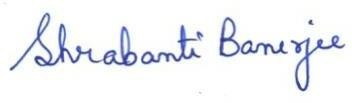 Shrabanti Banerjee